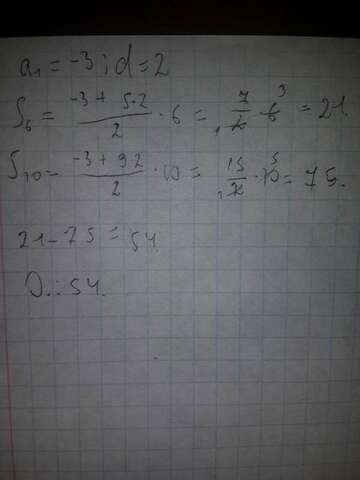 a₁ = -3; d = 2
S₆ = (-3 + 5·2)/2 · 6 = 7/2 · 6 3 = 21
S₁₀ = (-3 + 9·2)/2 · 10 = 15/2 · 10 5 = 75.
21 - 75 = 54.
О.: 54.